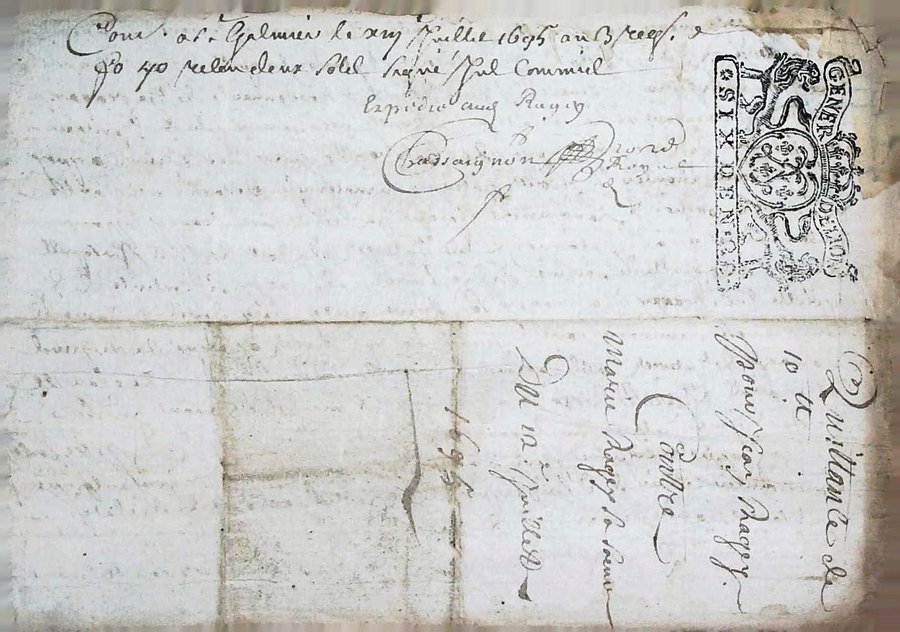 Conr. a St Galmier le xiij Juillet 1695 au 3 regr. e
fo 40 Relen deux solz signé Jul Commis
Expedie aud Ragey
Chassaignon Nore
Royal
GENER DE LYON
SIX DEN
Quittance de
10 tt
Pour Jean Ragey
Contre
Marie Ragey sa soeur
Du 12 Juillet
1695